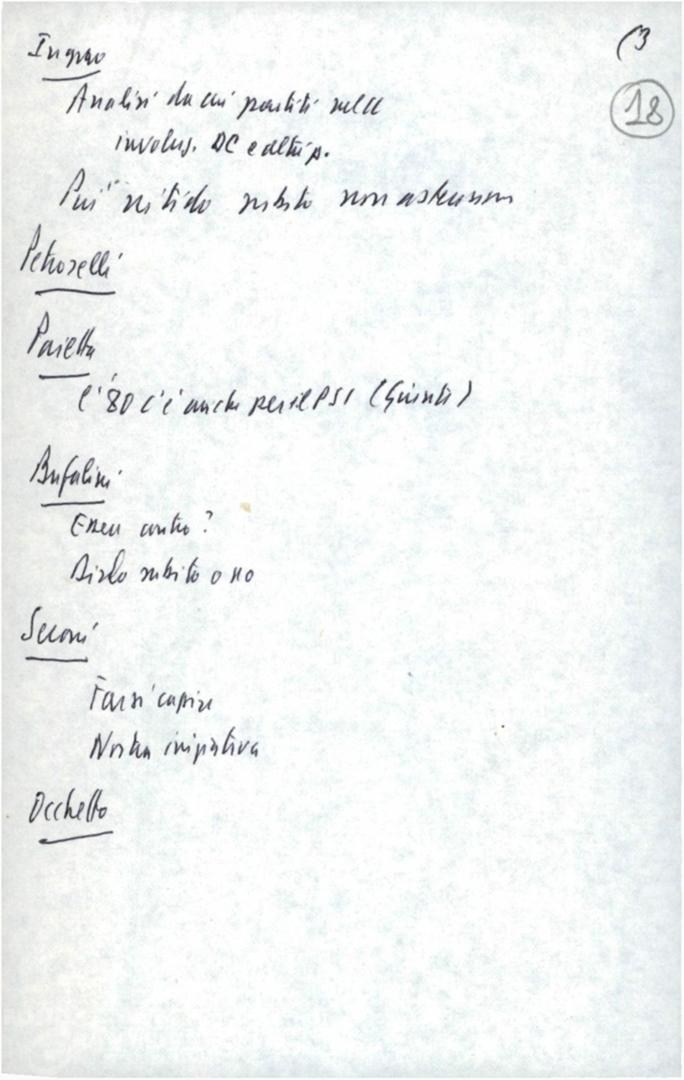 (3
18
Ingrao
Analisi da cui partiti nelle
involuz. DC e altri p.
Più nitido subito non astensione
Petroselli
Pajetta
L'80 c'è anche per il PSI (Giunte)
Bufalini
Essere contro?
Dirlo subito o no
Seroni
Farsi capire
Nostra iniziativa
Occhetto